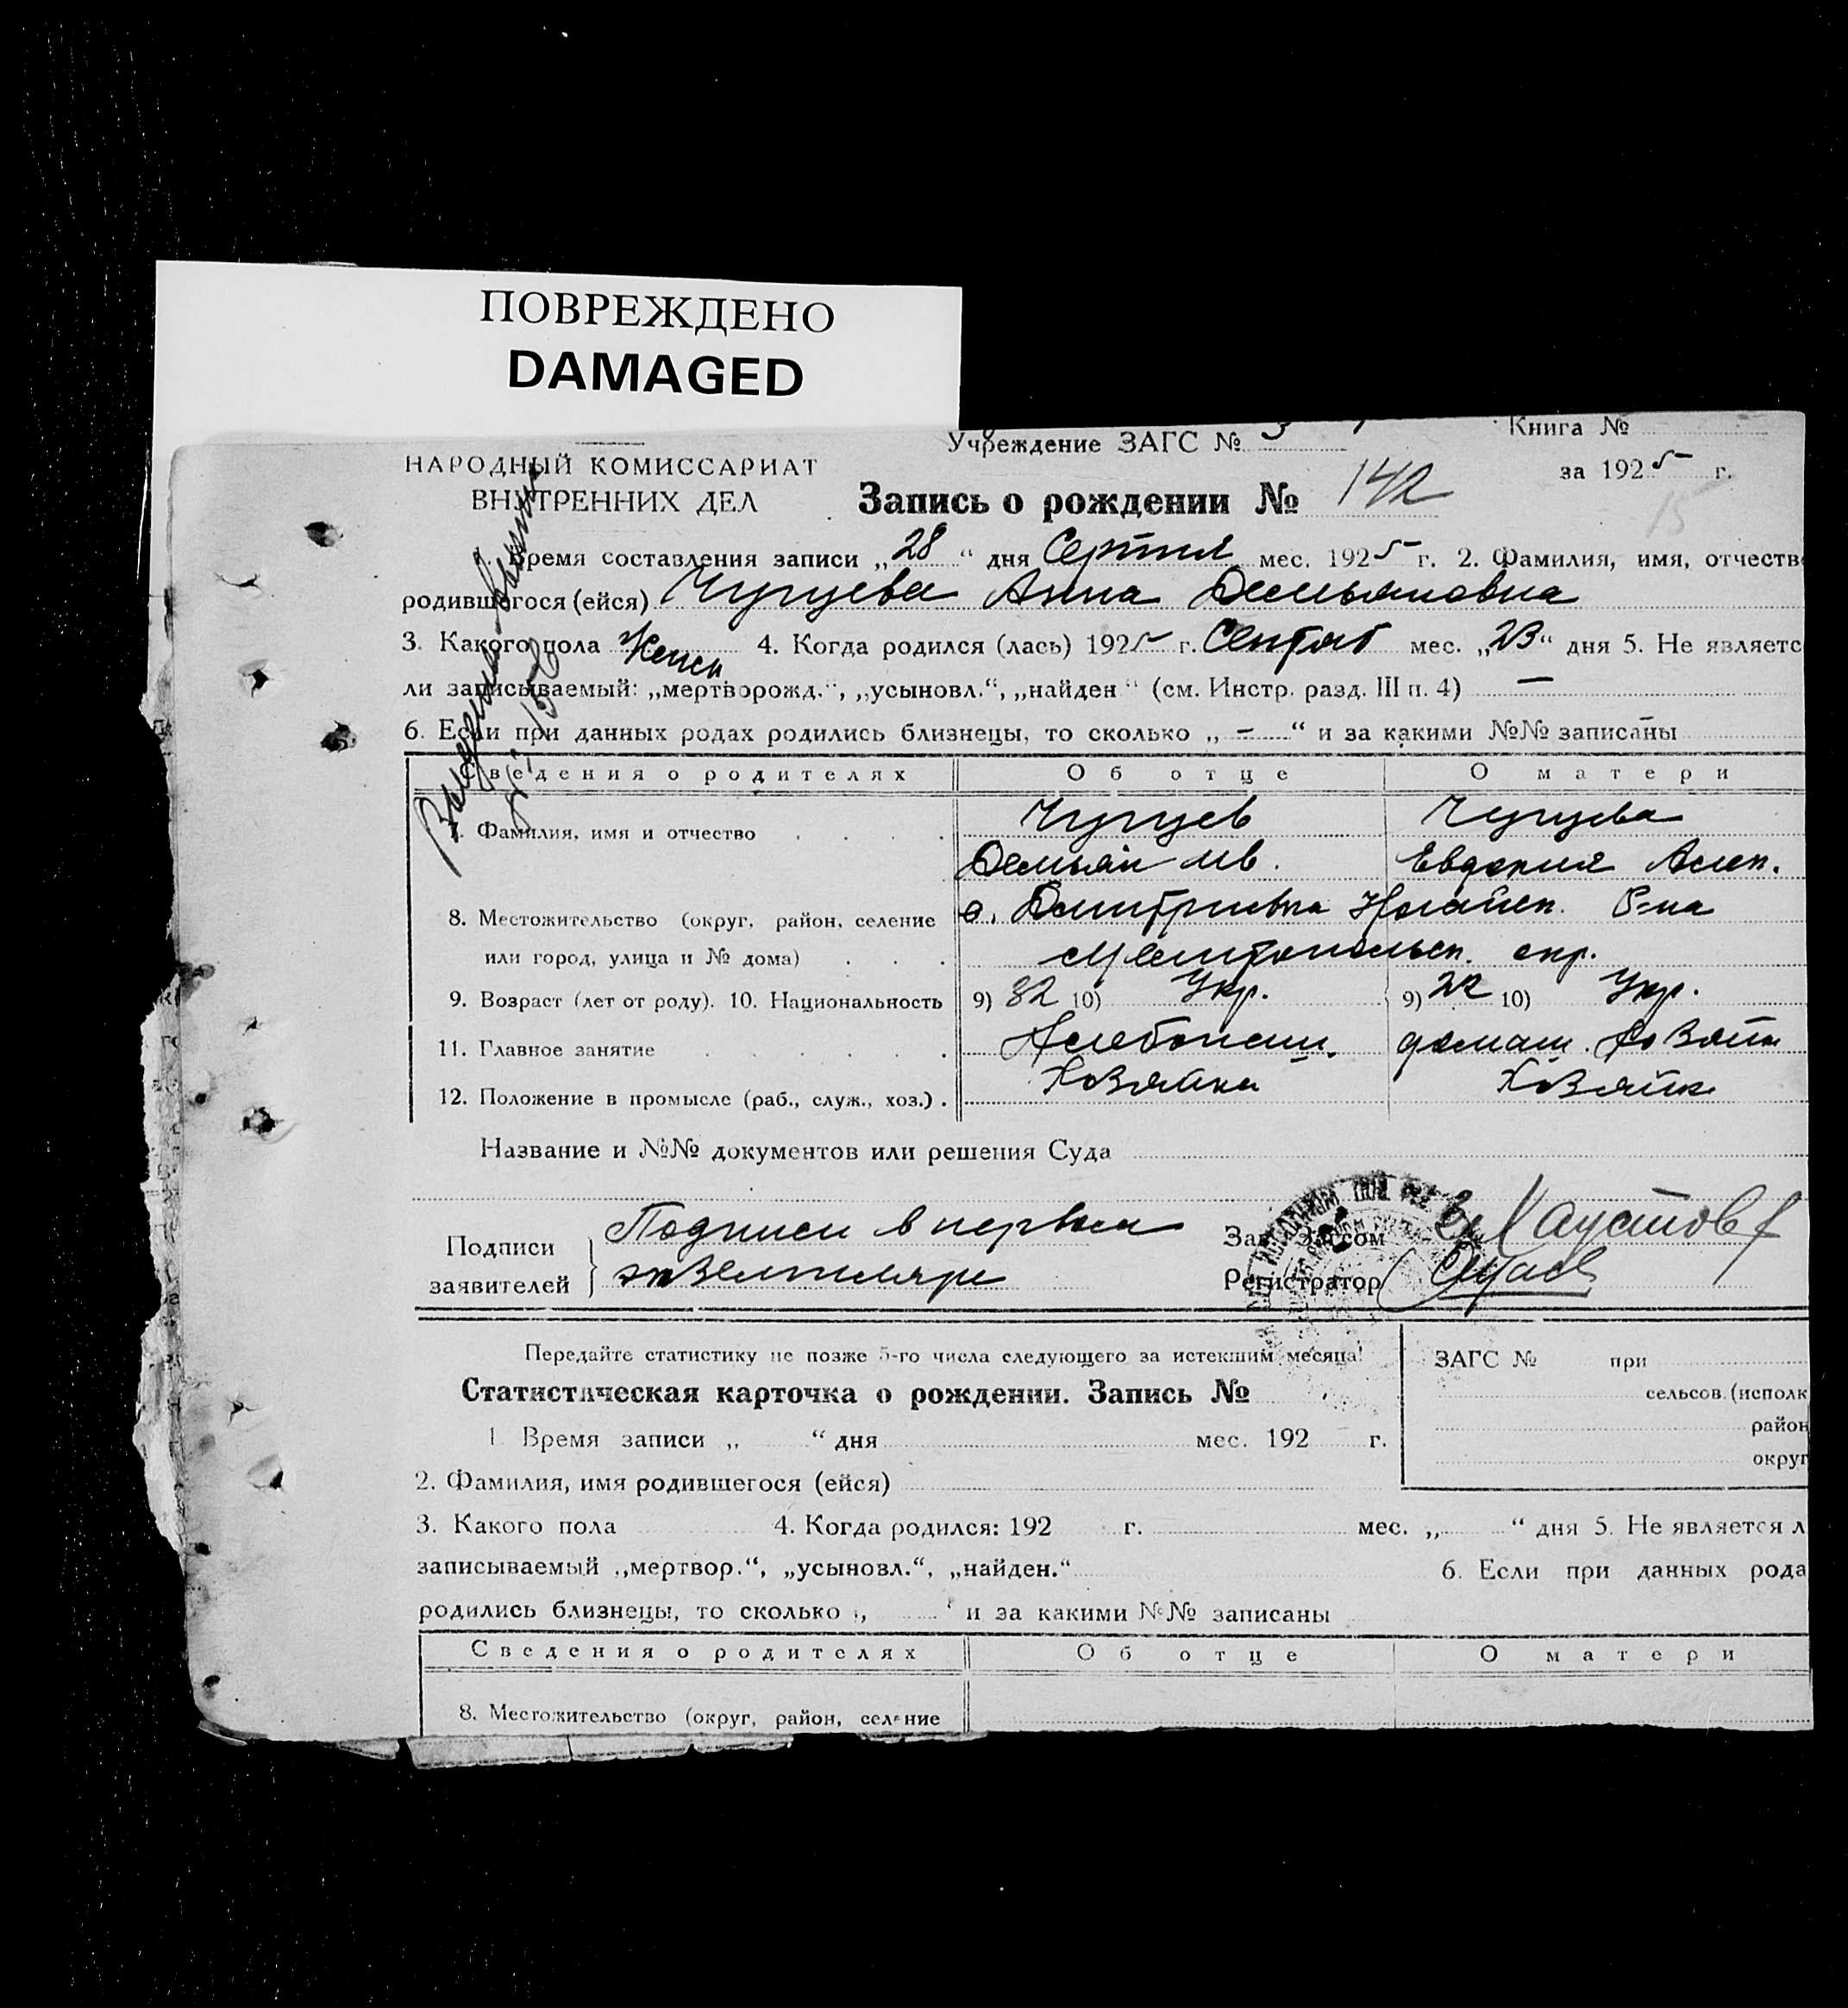 ПОВРЕЖДЕНО
DAMAGED
Учреждение ЗАГС №
Книга №
НАРОДНЫЙ КОМИССАРИАТ
ВНУТРЕННИХ ДЕЛ
за 1925 г.
Запись о рождении № 142
15
Время составления записи „28“ дня мес. 1925 г. 2. Фамилия, имя, отчеств
родившегося (ейся) Чугуева Анна Демьяновна
3. Какого пола Женск 4. Когда родился (лась) 1925 г. Сентяб мес. „23“ дня 5. Не являетс
ли записываемый: „мертворожд.“, „усыновл.“, „найден“ (см. Инстр. разд. III п. 4) —
6. Если при данных родах родились близнецы, то сколько „ — “ и за какими №№ записаны —
Сведения о родителях Об отце О матери
7. Фамилия, имя и отчество Чугуев Чугуева
Демьян Ив. Евдокия Алек.
8. Местожительство (округ, район, селение с. Дмитривка Ногайск. Р-на
или город, улица и № дома) Мелитопольск. окр.
9. Возраст (лет от роду). 10. Национальность 9) 32 10) Укр. 9) 22 10) Укр.
11. Главное занятие Хлебопаш. домаш. хозяйк
12. Положение в промысле (раб., служ., хоз.) Хозяйка Хозяйк
Название и №№ документов или решения Суда
Подписи Подписи в первом Зав. Загсом Хаустов
заявителей экземпляре Регистратор
Передайте статистику не позже 5-го числа следующего за истекшим месяца!
ЗАГС № при
Статистическая карточка о рождении. Запись №
сельсов. (исполк
район
1. Время записи „ “ дня мес. 192 г.
округ
2. Фамилия, имя родившегося (ейся)
3. Какого пола 4. Когда родился: 192 г. мес. „ “ дня 5. Не является л
записываемый „мертвор.“, „усыновл.“, „найден.“ 6. Если при данных рода
родились близнецы, то сколько „ “ и за какими №№ записаны
Сведения о родителях Об отце О матери
8. Местожительство (округ, район, селение